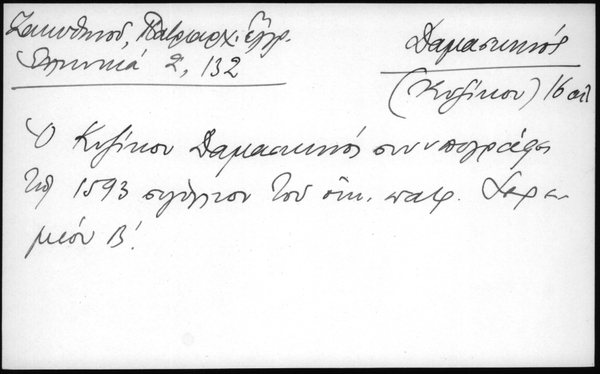 Ζακυθηνοῦ, Πατριαρχ. ἔγγρ.
Ἑλληνικά 2, 132
Δαμασκηνός
(Κυζίκου) 16 αἰ
Ὁ Κυζίκου Δαμασκηνός συνυπογράφει
τῷ 1593 σιγίλλιον τοῦ οἰκ. πατρ. Ἱερε-
μίου Β'.